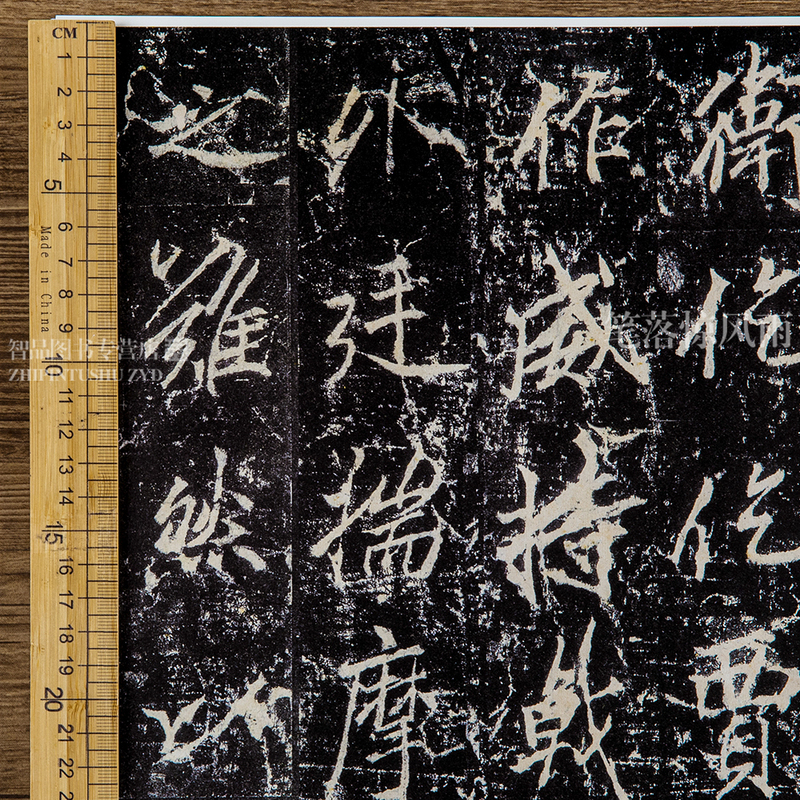 衛仡仡賈
作威持戟
外廷揣摩
之難然
CM
1
2
3
4
5
6
7
8
9
10
11
12
13
14
15
16
17
18
19
20
21
22
Made in China
智品图书专营店
ZHIPINTUSHU ZYD
笔落惊风雨